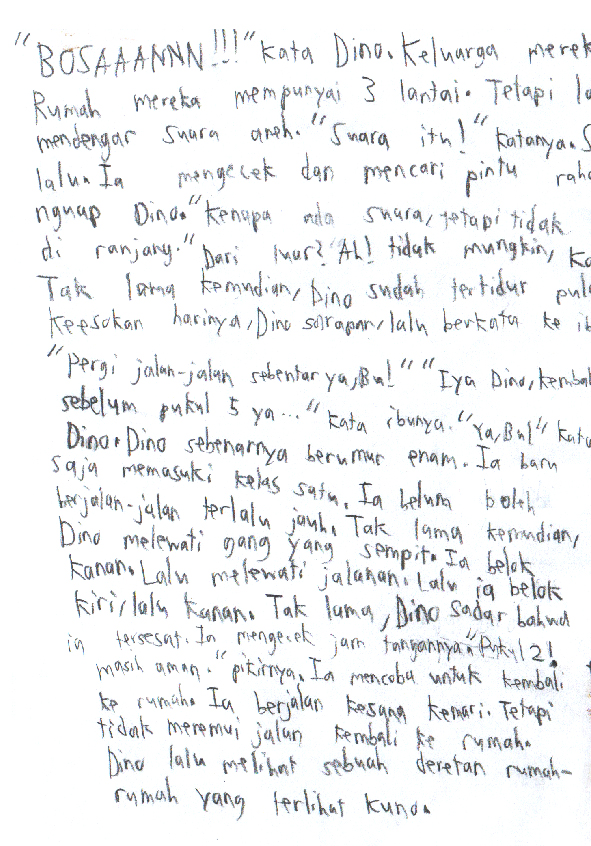 "BOSAAANNN!!!" kata Dino. Keluarga merek
Rumah mereka mempunyai 3 lantai. Tetapi la
mendengar suara aneh. "Suara itu!" katanya. S
lalu. Ia mengecek dan mencari pintu raha
nguap Dino. "kenapa ada suara, tetapi tidak
di ranjang." "Dari luar? Ah! tidak mungkin, ka
Tak lama kemudian, Dino sudah tertidur pula
keesokan harinya, Dino sarapan, lalu berkata ke ib
"Pergi jalan-jalan sebentar ya, Bu!" "Iya Dino, kembal
sebelum pukul 5 ya..." kata ibunya. "Ya, Bu!" kata
Dino. Dino sebenarnya berumur enam. Ia baru
saja memasuki kelas satu. Ia belum boleh
berjalan-jalan terlalu jauh. Tak lama kemudian,
Dino melewati gang yang sempit. Ia belok
kanan. Lalu melewati jalanan. Lalu ia belok
kiri, lalu kanan. Tak lama, Dino sadar bahwa
ia tersesat. Ia mengecek jam tangannya. "Pukul 2!
masih aman." pikirnya. Ia mencoba untuk kembali
ke rumah. Ia berjalan kesana kemari. Tetapi
tidak meremui jalan kembali ke rumah.
Dino lalu melihat sebuah deretan rumah-
rumah yang terlihat kuno.